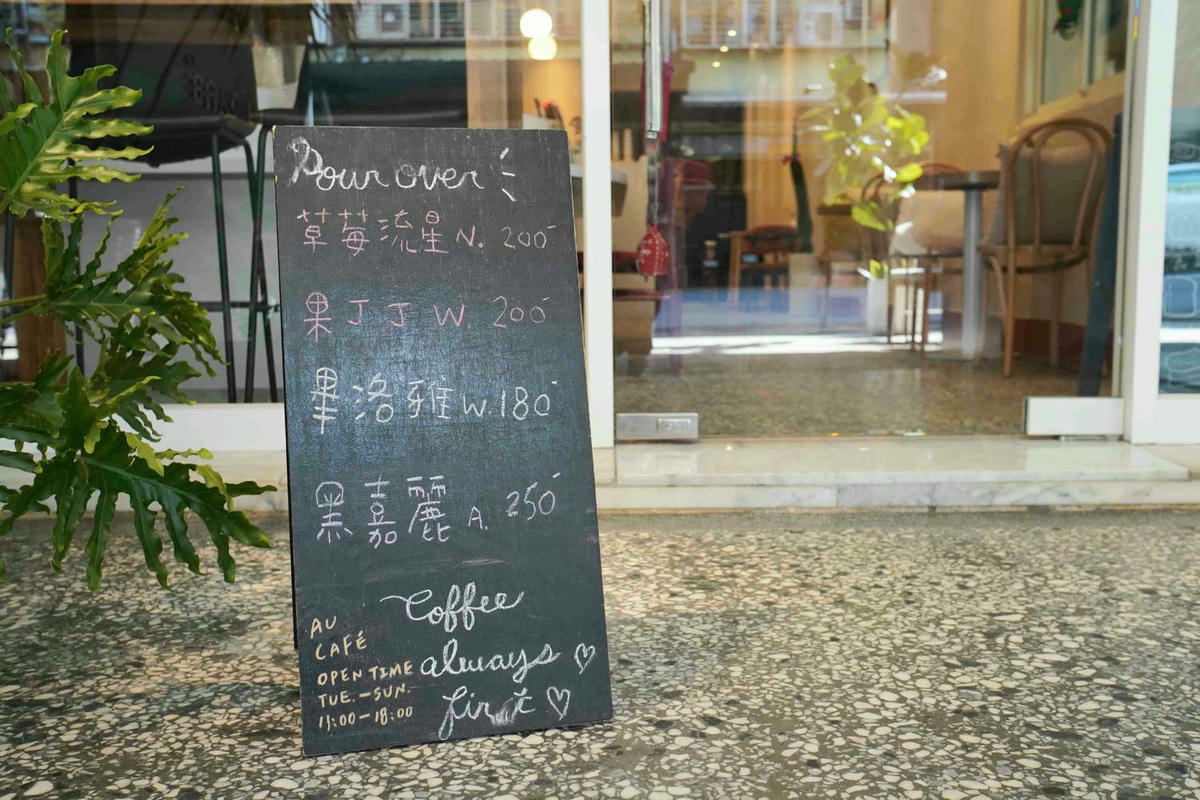 Pour over
草莓流星 N. 200
果丁丁 W. 200
畢洛雅 W. 180
黑嘉麗 A. 250
Coffee
always ♡
first ♡
AU
CAFÉ
OPEN TIME
TUE.-SUN.
11:00-18:00